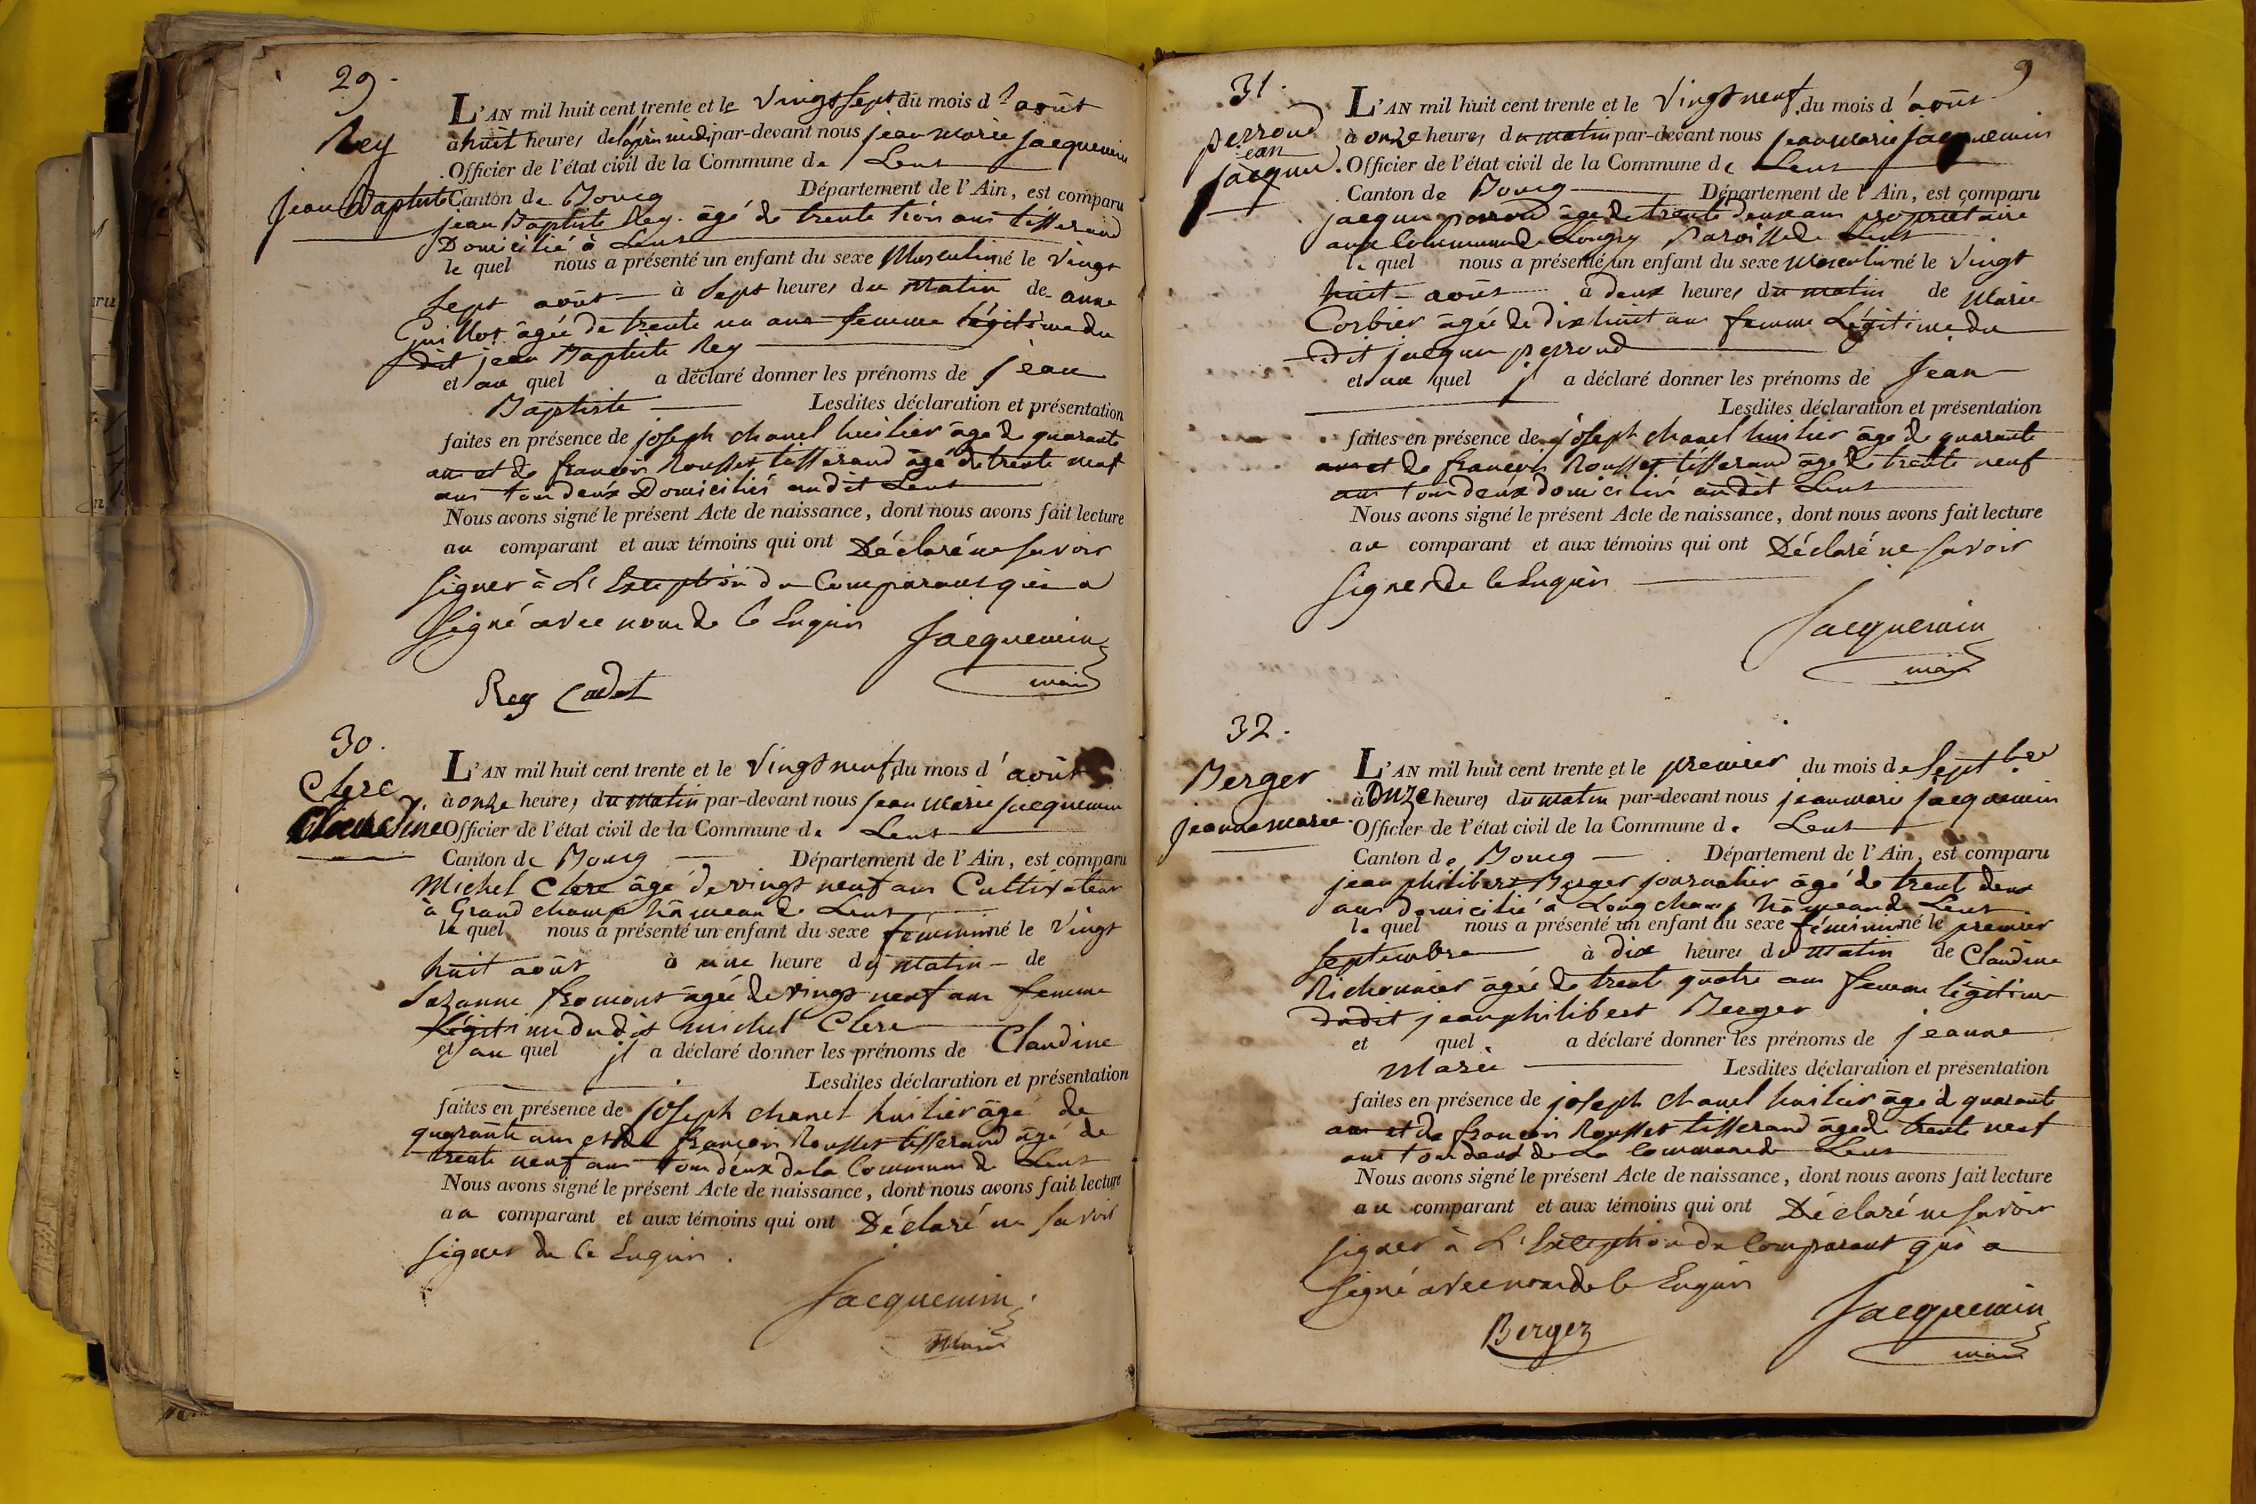 29.
Rey
jean Baptiste
L'AN mil huit cent trente et le vingt sept du mois d' août
à huit heures de l'après midi par-devant nous jean marie jacquemin
Officier de l'état civil de la Commune de Lent
Canton de Bourg Département de l'Ain, est comparu
jean Baptiste Rey âgé de trente trois ans tisserand
Domicilié à Lent
le quel nous a présenté un enfant du sexe Masculin né le vingt
sept août à sept heures du matin de anne
Guillot âgée de trente un ans femme légitime du
dit jean Baptiste Rey
et au quel a déclaré donner les prénoms de jean
Baptiste Lesdites déclaration et présentation
faites en présence de joseph chanel huilier âgé de quarante
ans et de françois Rousset tisserand âgé de trente neuf
ans tous deux Domiciliés audit Lent
Nous avons signé le présent Acte de naissance, dont nous avons fait lecture
au comparant et aux témoins qui ont Déclaré ne savoir
signer à L'Exception du Comparant qui a
signé avec nous de ce Enquis
Jacquemin
maire
Rey Cadet
30.
Clerc
Claudine
L'AN mil huit cent trente et le vingt neuf du mois d' août
à onze heures du matin par-devant nous jean marie jacquemin
Officier de l'état civil de la Commune de Lent
Canton de Bourg Département de l'Ain, est comparu
Michel Clerc âgé de vingt neuf ans Cultivateur
à Grand champ hâmeau de Lent
le quel nous a présenté un enfant du sexe féminin né le vingt
huit août à une heure du matin de
Suzanne fromont âgée de vingt neuf ans femme
légitime du dit michel Clerc
et au quel il a déclaré donner les prénoms de Claudine
Lesdites déclaration et présentation
faites en présence de joseph chanel huilier âgé de
quarante ans et de françois Rousset tisserand âgé de
trente neuf ans tous deux de la Commune de Lent
Nous avons signé le présent Acte de naissance, dont nous avons fait lecture
au comparant et aux témoins qui ont Déclaré ne savoir
signer de ce Enquis.
Jacquemin
Maire
9
31.
perroud
jean
jacques.
L'AN mil huit cent trente et le vingt neuf du mois d' août
à onze heures du matin par-devant nous jean marie jacquemin
Officier de l'état civil de la Commune de Lent
Canton de Bourg Département de l'Ain, est comparu
jacques perroud âgé de trente deux ans proprietaire
aux Communes de Longry Paroisse de Lent
le quel nous a présenté un enfant du sexe masculin né le vingt
huit août à deux heures du matin de Marie
Corbier âgée de dix huit ans femme Légitime du
dit jacques perroud
et au quel il a déclaré donner les prénoms de Jean
Lesdites déclaration et présentation
faites en présence de joseph chanel huilier âgé de quarante
ans et de françois Rousset tisserand âgé de trente neuf
ans tous deux domiciliés audit Lent
Nous avons signé le présent Acte de naissance, dont nous avons fait lecture
au comparant et aux témoins qui ont Déclaré ne savoir
signer de ce Enquis
Jacquemin
maire
32.
Berger
jeanne marie.
L'AN mil huit cent trente et le premier du mois de Septbre
à onze heures du matin par-devant nous jean marie jacquemin
Officier de l'état civil de la Commune de Lent
Canton de Bourg Département de l'Ain, est comparu
jean philibert Berger journalier âgé de trent deux
ans domicilié à Longchamp hâmeau de Lent
le quel nous a présenté un enfant du sexe féminin né le premier
septembre à dix heures du matin de Claudine
Richonnier âgée de trent quatre ans femme légitime
dudit jean philibert Berger
et quel a déclaré donner les prénoms de jeanne
Marie Lesdites déclaration et présentation
faites en présence de joseph chanel huilier âgé de quarante
ans et de françois Rousset tisserand âgé de trente neuf
ans tous deux de La Commune de Lent
Nous avons signé le présent Acte de naissance, dont nous avons fait lecture
au comparant et aux témoins qui ont Déclaré ne savoir
signer à L'Exception du Comparant qui a
signé avec nous de ce Enquis
Jacquemin
maire
Berger